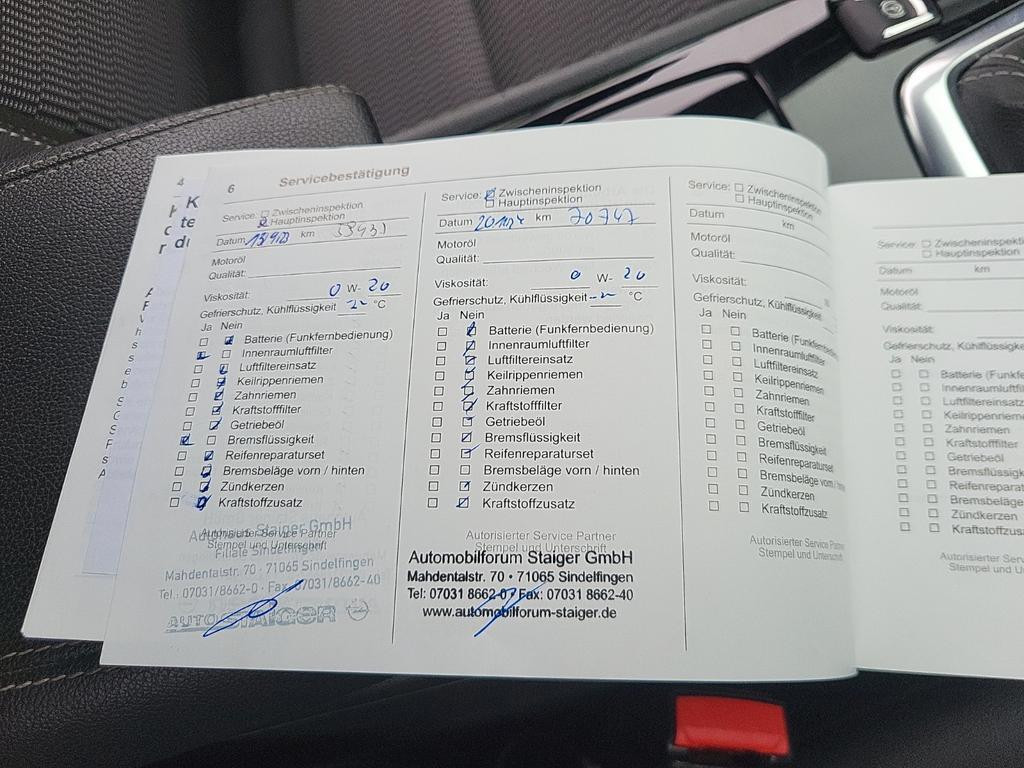 4
6
Servicebestätigung
Service: Zwischeninspektion
Hauptinspektion
Datum km
Motoröl
Qualität:
Viskosität: 0 W- 20
Gefrierschutz, Kühlflüssigkeit °C
Ja Nein
Batterie (Funkfernbedienung)
Innenraumluftfilter
Luftfiltereinsatz
Keilrippenriemen
Zahnriemen
Kraftstofffilter
Getriebeöl
Bremsflüssigkeit
Reifenreparaturset
Bremsbeläge vorn / hinten
Zündkerzen
Kraftstoffzusatz
Autorisierter Service Partner
Stempel und Unterschrift
Staiger GmbH
Filiale Sindelfingen
Mahdentalstr. 70 · 71065 Sindelfingen
Tel.: 07031/8662-0 · Fax 07031/8662-40
AUTO STAIGER
Service: Zwischeninspektion
Hauptinspektion
Datum km 70747
Motoröl
Qualität:
Viskosität: 0 W- 20
Gefrierschutz, Kühlflüssigkeit °C
Ja Nein
Batterie (Funkfernbedienung)
Innenraumluftfilter
Luftfiltereinsatz
Keilrippenriemen
Zahnriemen
Kraftstofffilter
Getriebeöl
Bremsflüssigkeit
Reifenreparaturset
Bremsbeläge vorn / hinten
Zündkerzen
Kraftstoffzusatz
Autorisierter Service Partner
Stempel und Unterschrift
Automobilforum Staiger GmbH
Mahdentalstr. 70 · 71065 Sindelfingen
Tel: 07031 8662-0 · Fax: 07031 8662-40
www.automobilforum-staiger.de
Service: Zwischeninspektion
Hauptinspektion
Datum km
Motoröl
Qualität:
Viskosität:
Gefrierschutz, Kühlflüssigkeit
Ja Nein
Batterie (Funkfernbedienung
Innenraumluftfilter
Luftfiltereinsatz
Keilrippenriemen
Zahnriemen
Kraftstofffilter
Getriebeöl
Bremsflüssigkeit
Reifenreparaturset
Bremsbeläge vorn / hin
Zündkerzen
Kraftstoffzusatz
Autorisierter Service Partner
Stempel und Unterschrift
Service: Zwischeninspekti
Hauptinspektion
Datum km
Motoröl
Qualität:
Viskosität:
Gefrierschutz, Kühlflüssigk
Ja Nein
Batterie (Funkfe
Innenraumluftfi
Luftfiltereinsatz
Keilrippenriemen
Zahnriemen
Kraftstofffilter
Getriebeöl
Bremsflüssigk
Reifenreparat
Bremsbeläge
Zündkerzen
Kraftstoffzus
Autorisierter Servi
Stempel und U